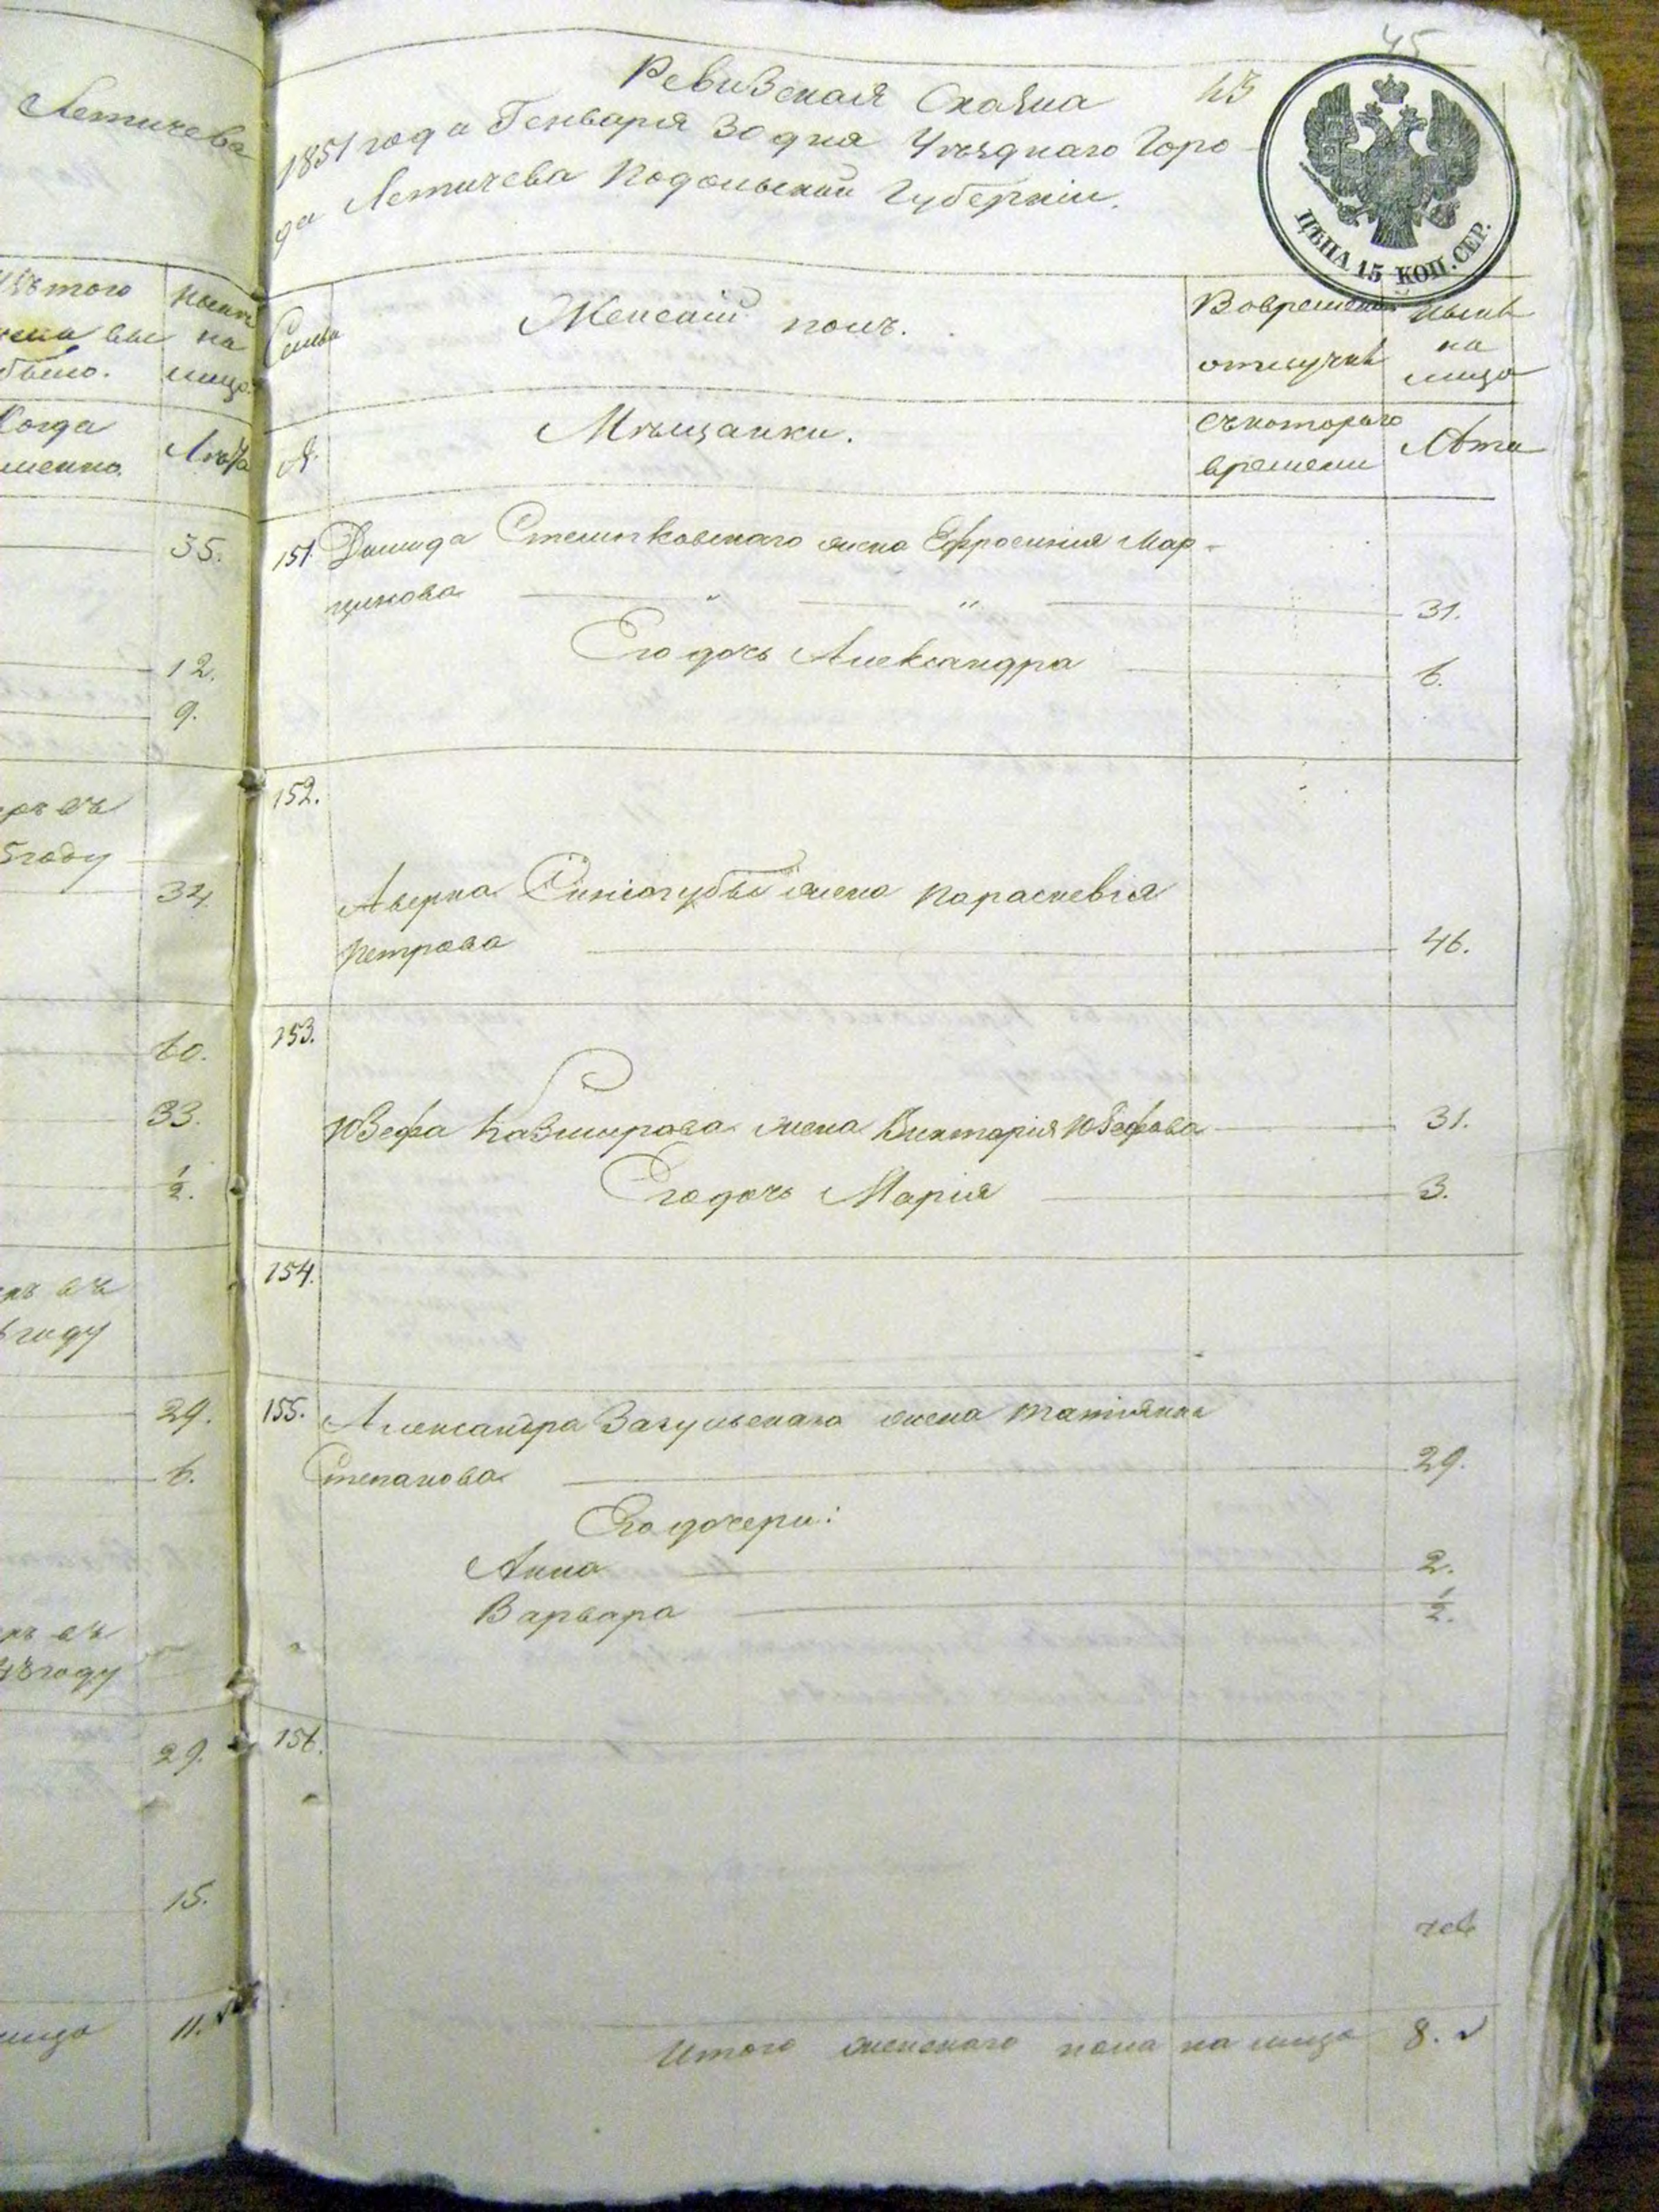 Летичева
изъ того
ныне
на
было.
лицо
Когда
Лѣта
35.
12.
9.
году
34.
60.
33.
½.
году
29.
6.
году
29.
15.
лицо 11.
45
43
Ревизская Сказка
1851 года Генваря 30 дня Уѣзднаго Горо-
да Летичева Подольской Губерніи.
ЦѢНА 15 КОП. СЕР.
Семьи
Женский полъ.
Во временной
отлучкѣ
Нынѣ
на
лицо
№.
Мѣщанки.
Съ котораго
времени
Лѣта
151. Демида жена Ефросиния Мар-
цинова " " 31.
Его дочь Александра 6.
152.
Аверка Синіогубы жена Параскевія
Петрова 46.
153.
Юзефа Казимирова жена Викторія Юзефова 31.
Его дочь Марія 3.
154.
155. Александра Загульскаго жена Татіянна
Степанова 29.
Его дочери:
Анна 2.
Варвара ½.
156.
Итого женскаго пола на лицо 8.